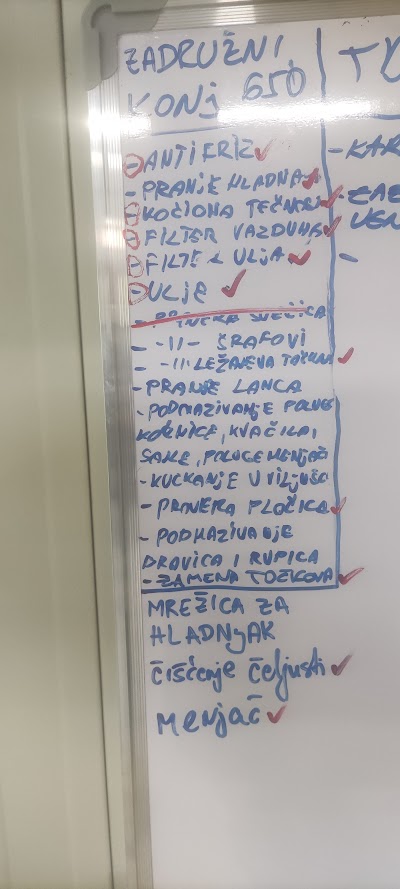 ZADRUŽNI
KONJ 650
- ANTIFRIZ
- PRANJE HLADNA
- KOČIONA TEČNOST
- FILTER VAZDUHA
- FILTER ULJA
- ULJE
- SVEĆICA
- -11- ŠRAFOVI
- -11- LEŽAJEVA
- PRANJE LANCA
- PODMAZIVANJE POLUGE
KOČNICE, KVAČILA,
SAJLE, POLUGE MENJAČ
- KUCKANJE U VILJUŠC
- PROVERA PLOČICA
- PODMAZIVANJE
I RUPICA
- ZAMENA TOČKOVA
MREŽICA ZA
HLADNJAK
čišćenje čeljusti
menjač
TU
- KAR